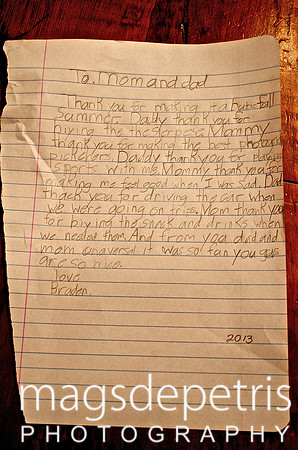 To. Mom and dad
Thank you for making it a butifall
Summer. Dady thank you for
Biying the the slerpese. Mommy
thank you for making the best photo
pickchers. Daddy thank you for playing
sports with me. Mommy thank you for
making me feel good when I was sad. Dad
thack you for driving the car when
we were going on trips. Mom thank you
for biying the snack and drinks when
we needed them. And from you dad and
mom unaversal it was so! fan you guys
are so nice.
love
Braden.
2013
magsdepetris
PHOTOGRAPHY